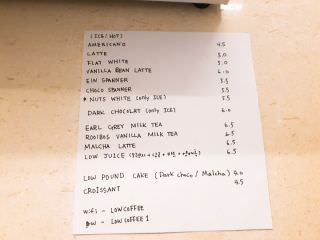 (ICE/HOT)
AMERICANO 4.5
LATTE 5.0
FLAT WHITE 5.0
VANILLA BEAN LATTE 6.0
EIN SPANNER 5.5
CHOCO SPANNER 5.5
* NUTS WHITE (only ICE) 5.5
DARK CHOCOLAT (only ICE) 6.0
EARL GREY MILK TEA 6.5
ROOIBOS VANILLA MILK TEA 6.5
MALCHA LATTE 6.5
LOW JUICE 6.5
LOW POUND CAKE (Dark choco / Malcha) 4.0
CROISSANT 4.5
Wifi - LOWCOFFEE
PW - LOWCOFFEE1